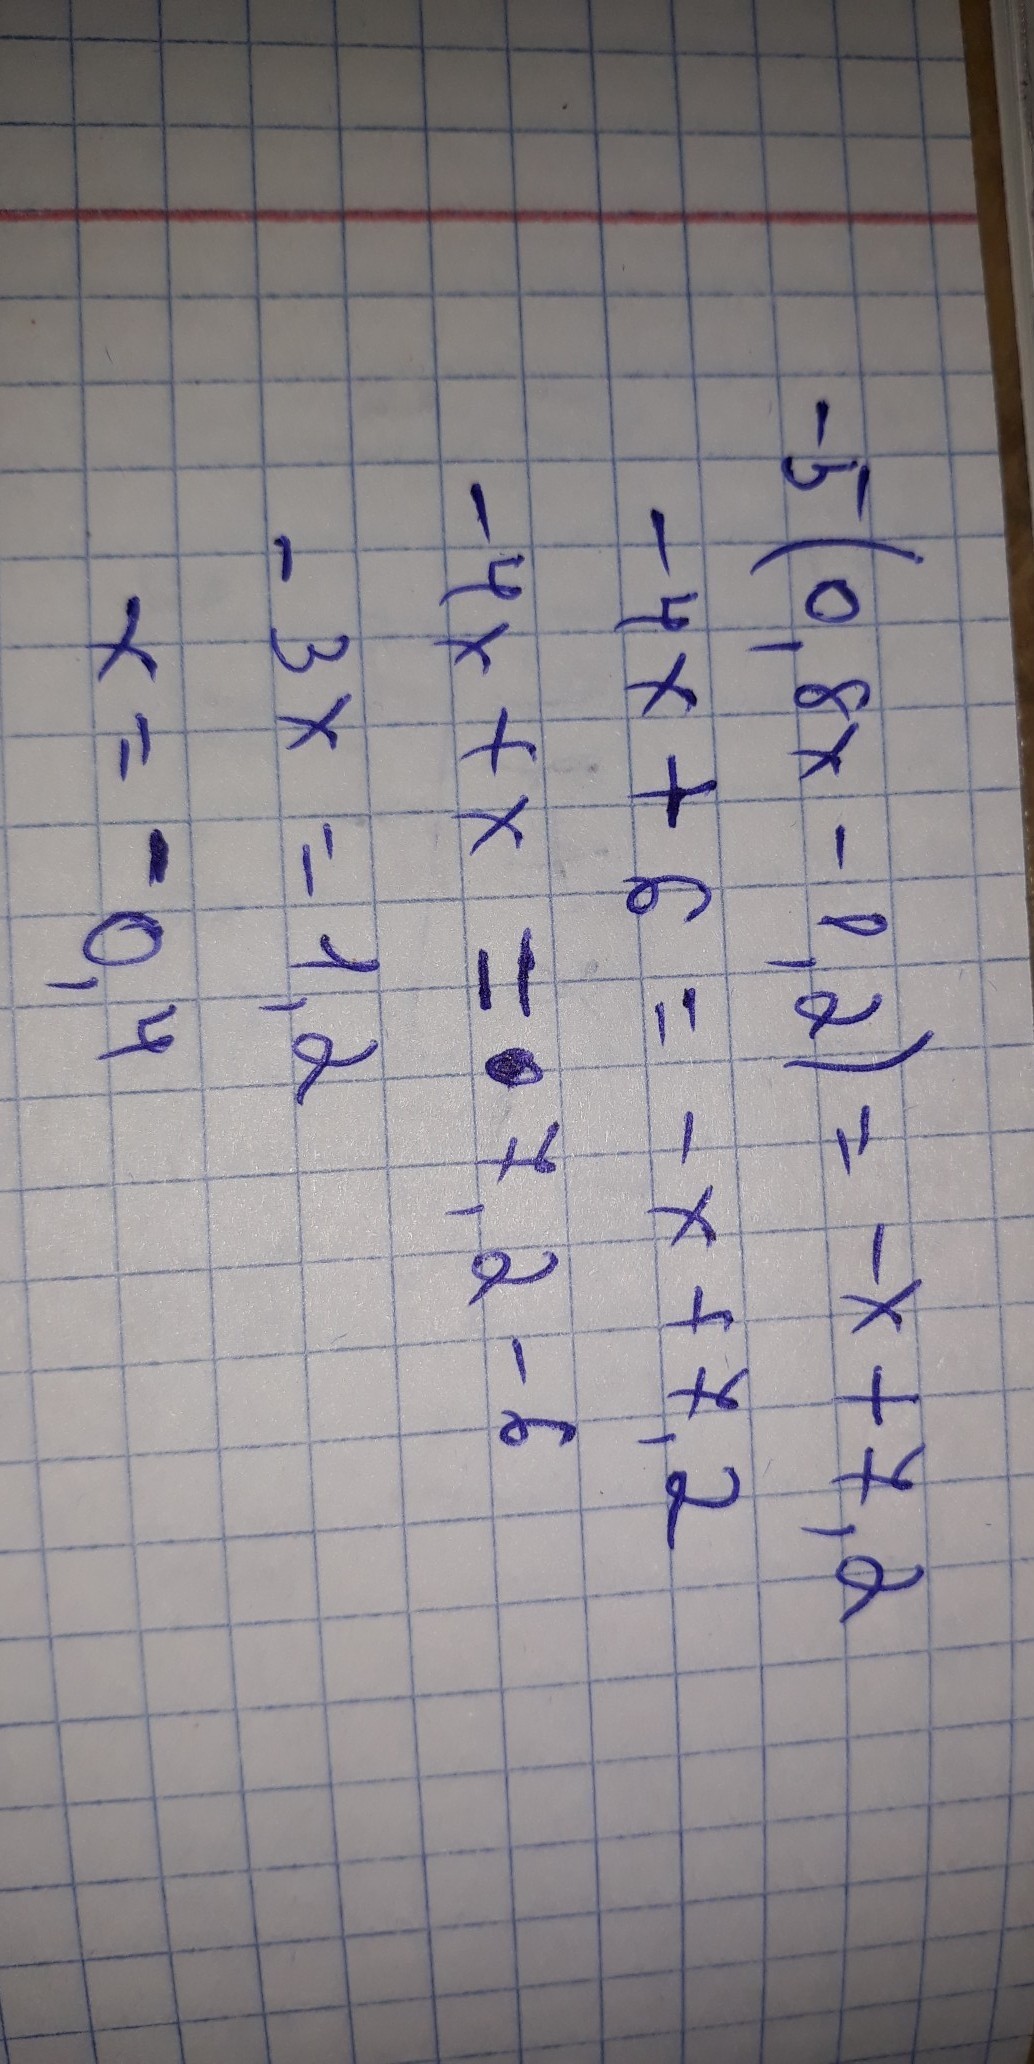 -5(0,8x - 1,2) = -x + 7,2
-4x + 6 = -x + 7,2
-4x + x = 7,2 - 6
-3x = 1,2
x = -0,4